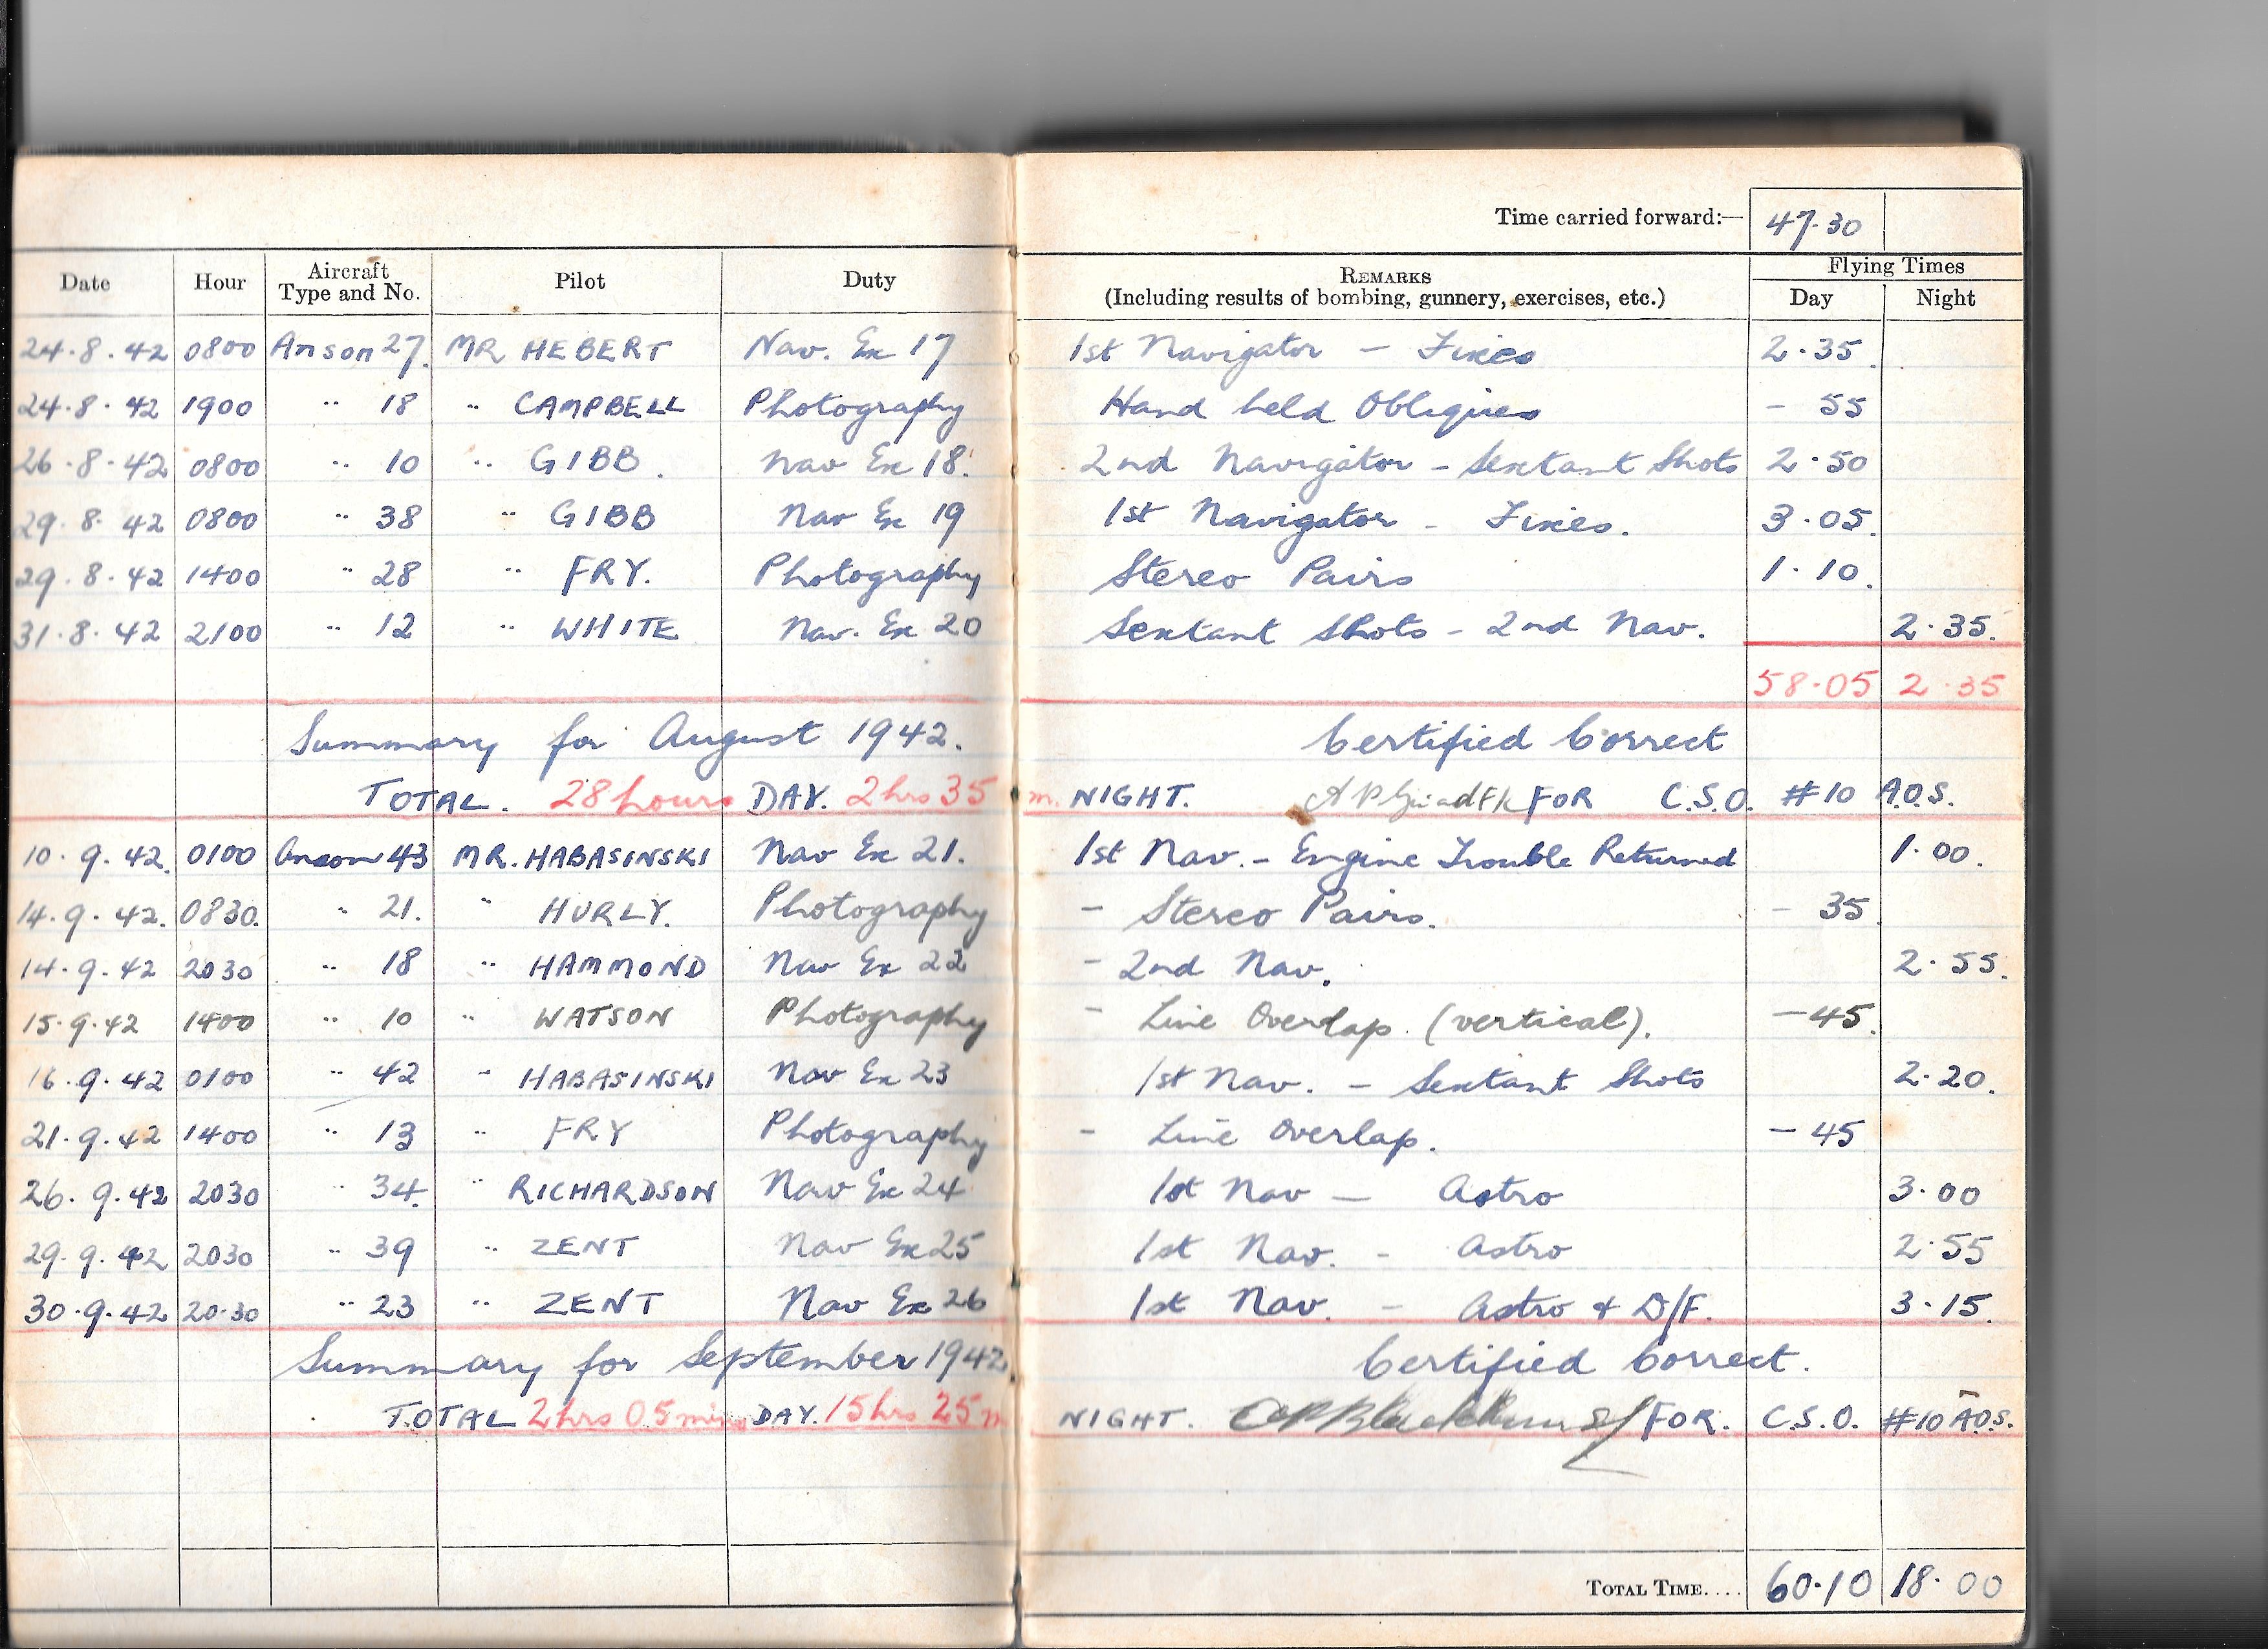 Time carried forward:— 47·30
Date Hour Aircraft Type and No. Pilot Duty REMARKS (Including results of bombing, gunnery, exercises, etc.) Flying Times Day Night
24·8·42 0800 Anson 27. MR HEBERT Nav. Ex 17 1st Navigator — Fixes 2·35.
24·8·42 1900 " 18 " CAMPBELL Photography Hand held Obliques - 55
26·8·42 0800 " 10 " GIBB. Nav Ex 18. 2nd Navigator - Sextant Shots 2·50
29·8·42 0800 " 38 " GIBB Nav Ex 19 1st Navigator - Fixes. 3·05.
29·8·42 1400 " 28 " FRY. Photography Stereo Pairs 1·10.
31·8·42 2100 " 12 " WHITE Nav. Ex 20 Sextant Shots - 2nd Nav. 2·35.
58·05 2·35
Summary for August 1942. Certified Correct
TOTAL. 28 hours DAY. 2 hrs 35 m. NIGHT. FOR C.S.O. #10 A.O.S.
10·9·42. 0100 Anson 43 MR. HABASINSKI Nav Ex 21. 1st Nav. - Engine Trouble Returned 1·00.
14·9·42. 0830. " 21. " HURLY. Photography - Stereo Pairs. - 35.
14·9·42 2030 " 18 " HAMMOND Nav Ex 22 - 2nd Nav. 2·55.
15·9·42 1400 " 10 " WATSON Photography - Line Overlap. (vertical). - 45.
16·9·42 0100 " 42 " HABASINSKI Nav Ex 23 1st Nav. - Sextant Shots 2·20.
21·9·42 1400 " 13 " FRY Photography - Line Overlap. - 45
26·9·42 2030 " 34. " RICHARDSON Nav Ex 24 1st Nav — Astro 3·00
29·9·42 2030 " 39 " ZENT Nav Ex 25 1st Nav. - Astro 2·55
30·9·42 20·30 " 23 " ZENT Nav Ex 26 1st Nav. - Astro & D/F. 3·15.
Summary for September 1942 Certified Correct.
TOTAL 2 hrs 05 mins DAY. 15 hrs 25 m NIGHT. FOR. C.S.O. #10 A.O.S.
TOTAL TIME.... 60·10 18·00